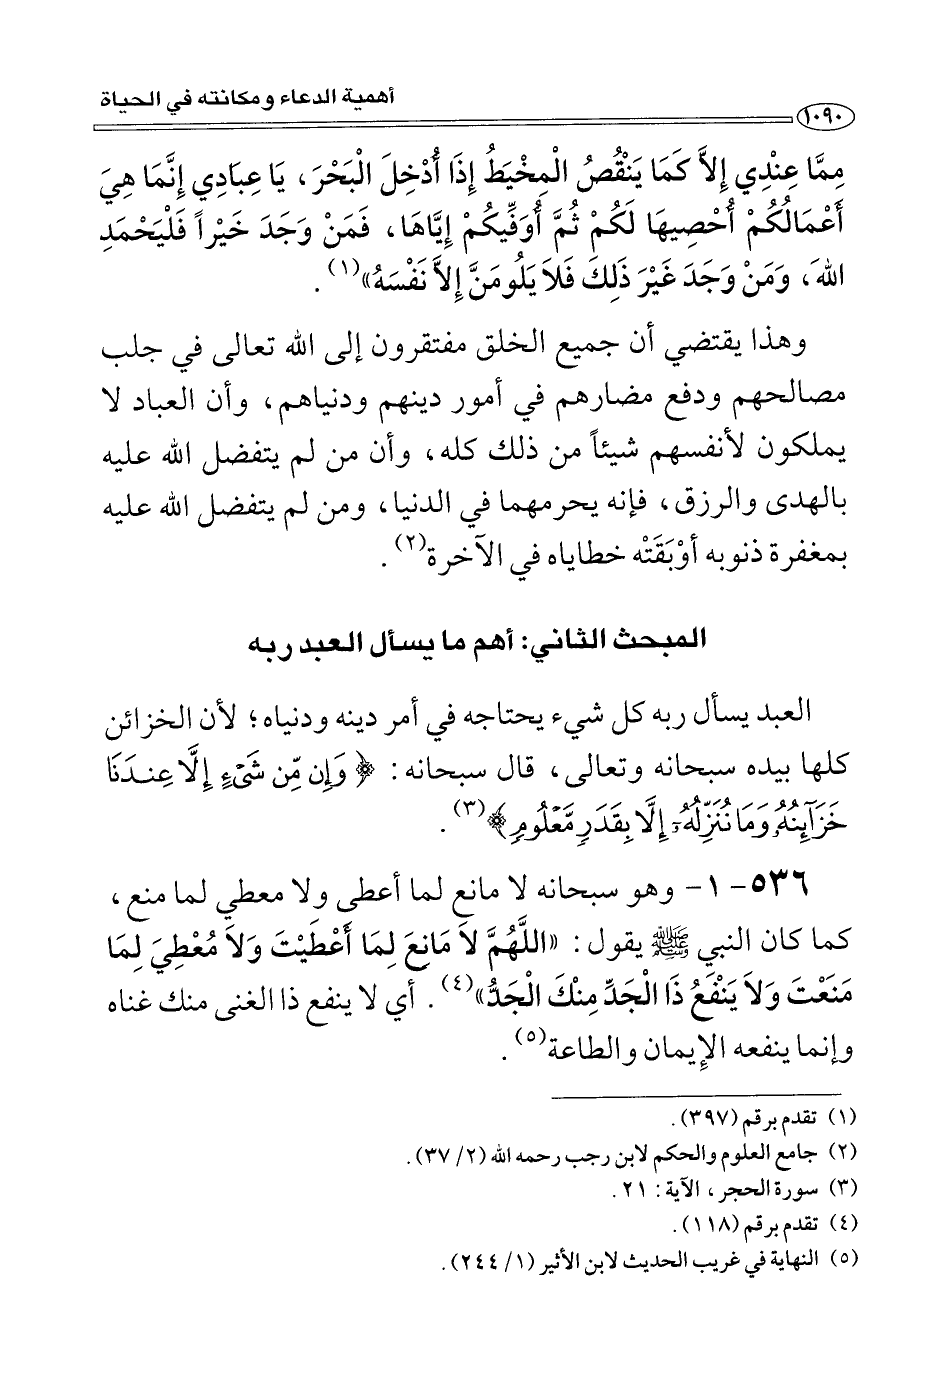 أهمية الدعاء ومكانته في الحياة
١٠٩٠
مِمَّا عِنْدِي إِلاَّ كَمَا يَنْقُصُ الْمِخْيَطُ إِذَا أُدْخِلَ الْبَحْرَ، يَا عِبَادِي إِنَّمَا هِيَ
أَعْمَالُكُمْ أُحْصِيهَا لَكُمْ ثُمَّ أُوَفِّيكُمْ إِيَّاهَا، فَمَنْ وَجَدَ خَيْراً فَلْيَحْمَدِ
اللهَ، وَمَنْ وَجَدَ غَيْرَ ذَلِكَ فَلاَ يَلُومَنَّ إِلاَّ نَفْسَهُ»(١).
وهذا يقتضي أن جميع الخلق مفتقرون إلى الله تعالى في جلب
مصالحهم ودفع مضارهم في أمور دينهم ودنياهم، وأن العباد لا
يملكون لأنفسهم شيئاً من ذلك كله، وأن من لم يتفضل الله عليه
بالهدى والرزق، فإنه يحرمهما في الدنيا، ومن لم يتفضل الله عليه
بمغفرة ذنوبه أوْبَقَتْه خطاياه في الآخرة(٢).
المبحث الثاني: أهم ما يسأل العبد ربه
العبد يسأل ربه كل شيء يحتاجه في أمر دينه ودنياه؛ لأن الخزائن
كلها بيده سبحانه وتعالى، قال سبحانه: ﴿وَإِن مِّن شَيْءٍ إِلَّا عِندَنَا
خَزَآئِنُهُۥ وَمَا نُنَزِّلُهُۥٓ إِلَّا بِقَدَرٍ مَّعْلُومٍ﴾(٣).
٥٣٦- ١- وهو سبحانه لا مانع لما أعطى ولا معطي لما منع،
كما كان النبي ﷺ يقول: «اللَّهُمَّ لاَ مَانِعَ لِمَا أَعْطَيْتَ وَلاَ مُعْطِيَ لِمَا
مَنَعْتَ وَلاَ يَنْفَعُ ذَا الْجَدِّ مِنْكَ الْجَدُّ»(٤). أي لا ينفع ذا الغنى منك غناه
وإنما ينفعه الإيمان والطاعة(٥).
(١) تقدم برقم (٣٩٧).
(٢) جامع العلوم والحكم لابن رجب رحمه الله (٢/ ٣٧).
(٣) سورة الحجر، الآية: ٢١.
(٤) تقدم برقم (١١٨).
(٥) النهاية في غريب الحديث لابن الأثير (١/ ٢٤٤).